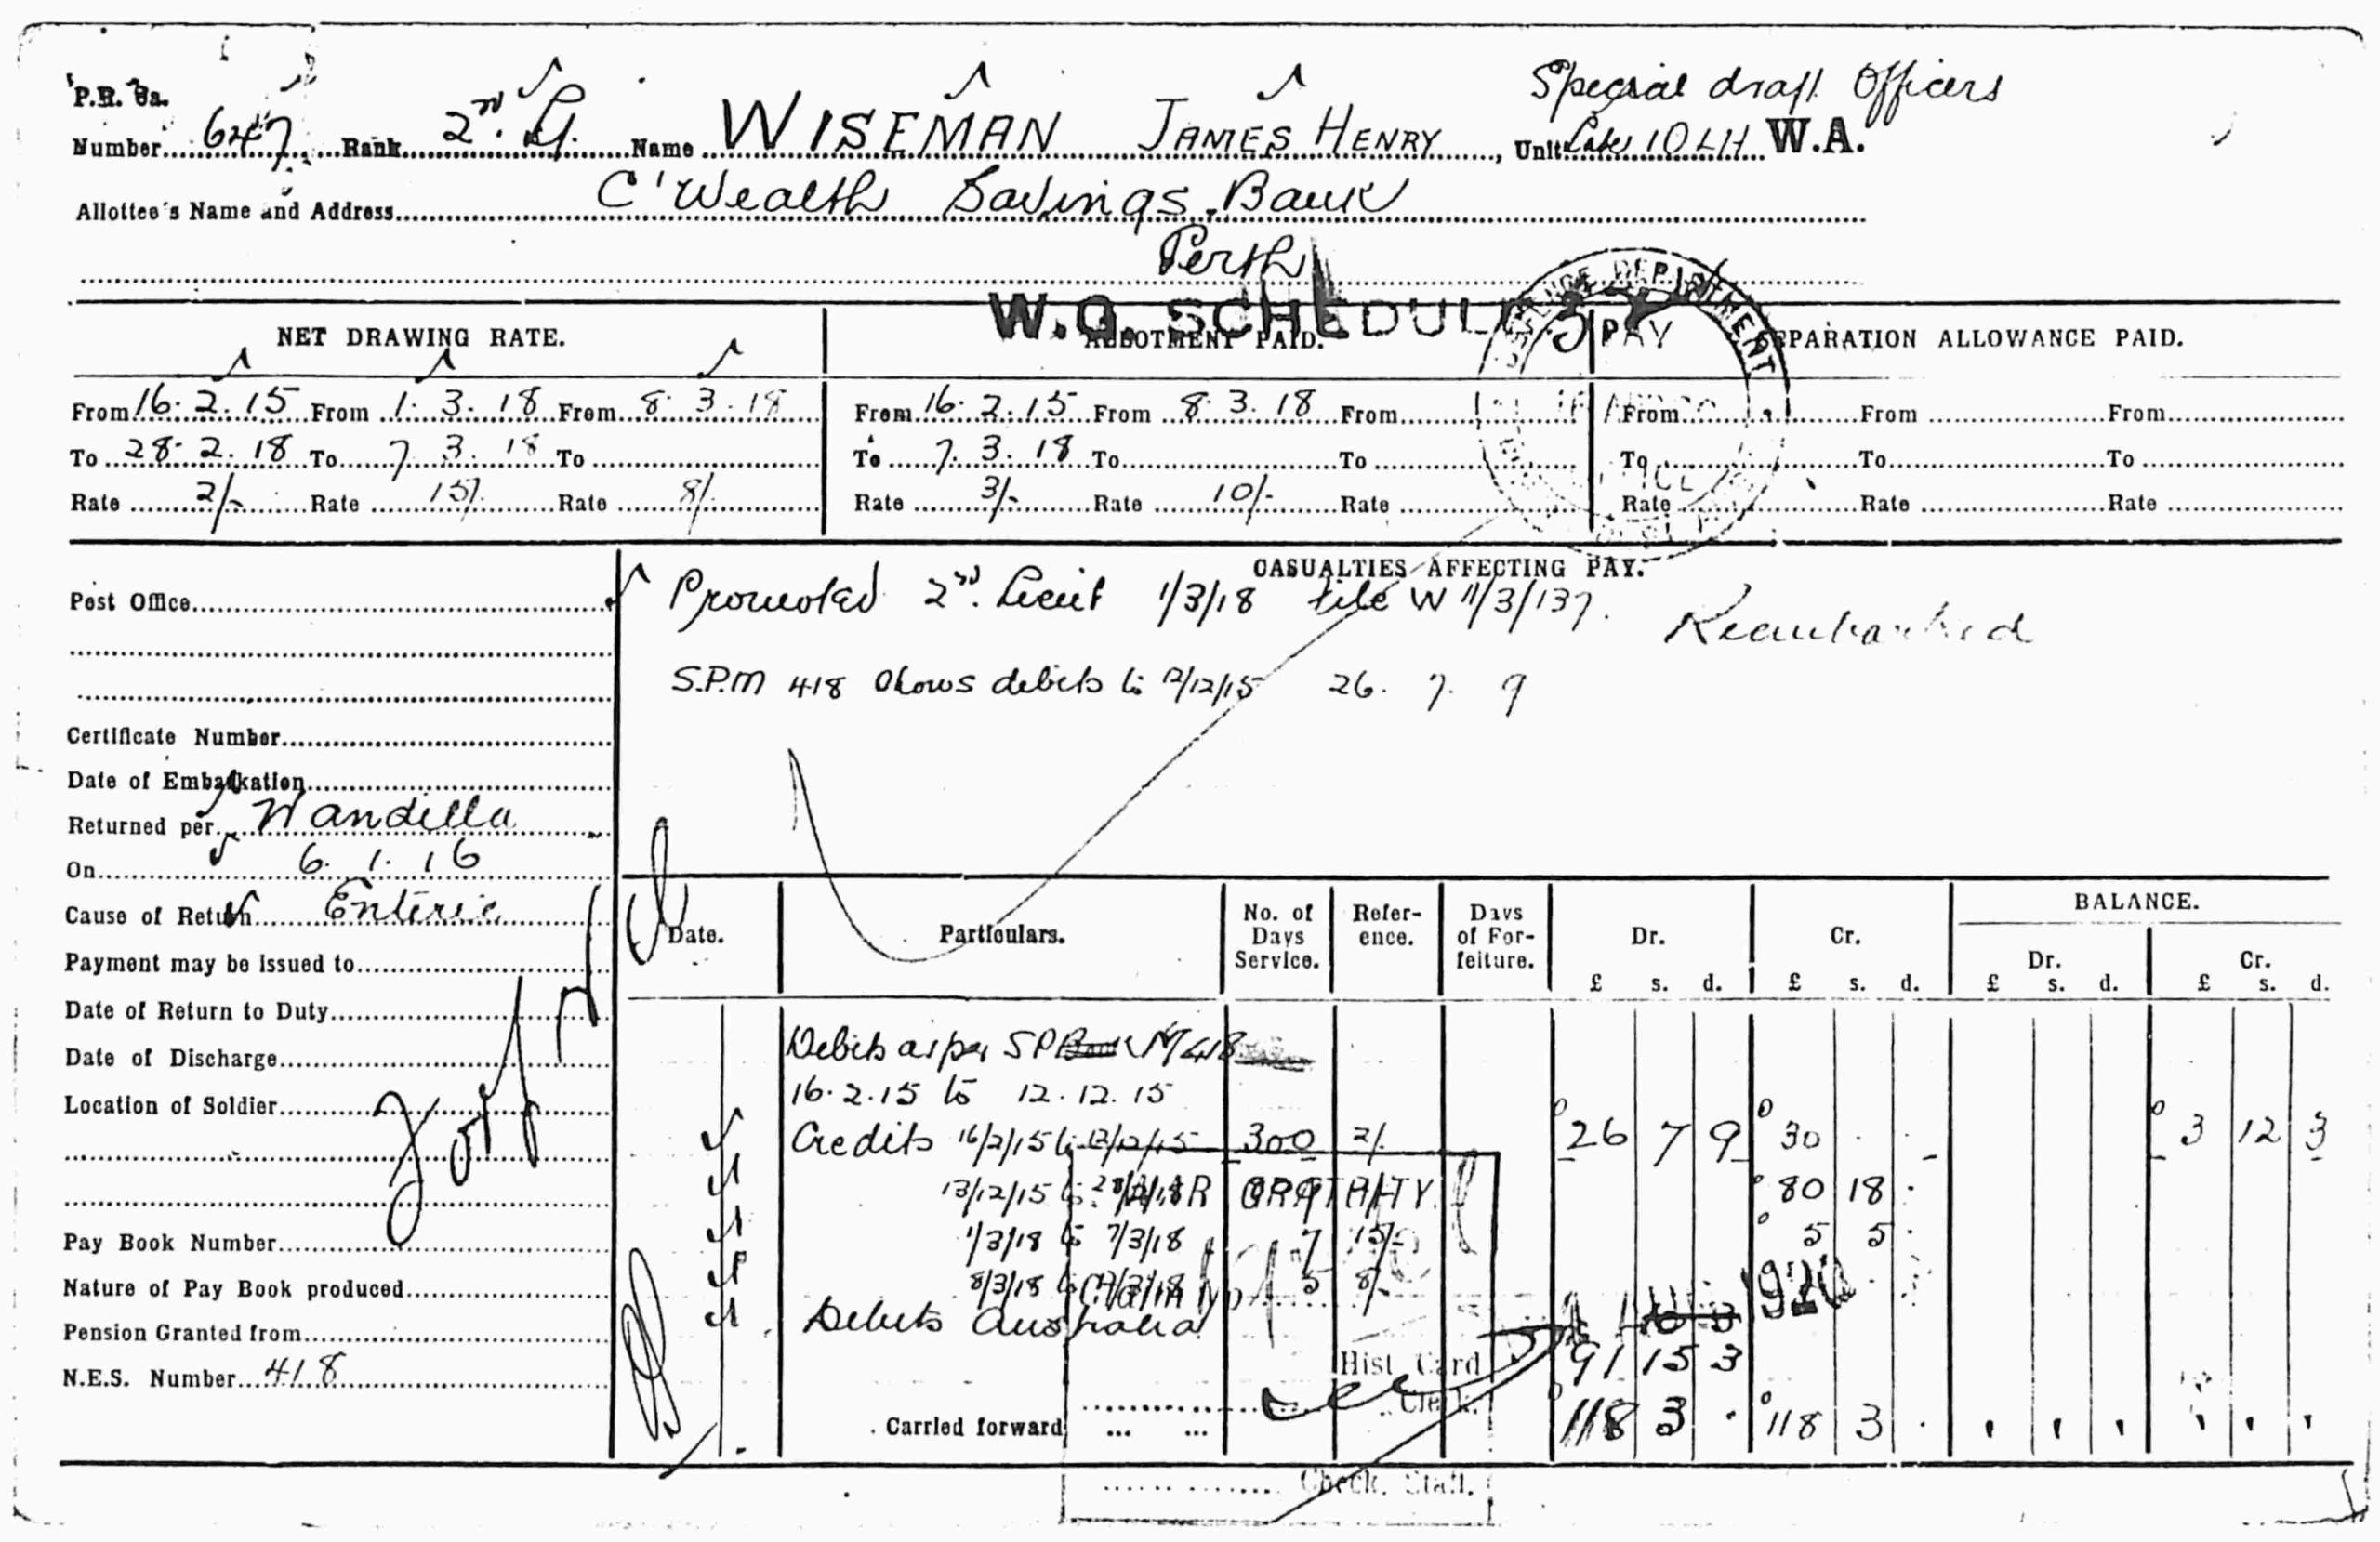 P.R. 8a.
Special draft Officers
Number 647 Rank 2nd Lt. Name WISEMAN JAMES HENRY, Unit Late 10 LH W.A.
Allottee's Name and Address C'Wealth Savings Bank
Perth
W.G. SCHEDULE
DEFENCE DEPARTMENT
PAY
NET DRAWING RATE. ALLOTMENT PAID. SEPARATION ALLOWANCE PAID.
From 16.2.15 From 1.3.18 From 8.3.18 From 16.2.15 From 8.3.18 From From From From
To 28.2.18 To 7.3.18 To To 7.3.18 To To To To To
Rate 2/- Rate 15/. Rate 8/. Rate 3/- Rate 10/- Rate Rate Rate Rate
CASUALTIES AFFECTING PAY.
Promoted 2nd Lieut 1/3/18 file W 11/3/137. Reembarked
S.P.M 418 Shows debits to 12/12/15 26. 7. 9
Post Office
Certificate Number
Date of Embarkation
Returned per Wandilla
On 6.1.16
Cause of Return Enteric
Payment may be issued to
Date of Return to Duty
Date of Discharge
Location of Soldier
Pay Book Number
Nature of Pay Book produced
Pension Granted from
N.E.S. Number 418
Date. Particulars. No. of Days Service. Reference. Days of Forfeiture. Dr. Cr. BALANCE.
Dr. Cr.
£ s. d. £ s. d. £ s. d. £ s. d.
Debits as per SP Book M 418
16.2.15 to 12.12.15
Credits 16/2/15 to 12/12/15 300 2/- 26 7 9 30 . . 3 12 3
13/12/15 to 28/2/18 80 18 .
WAR GRATUITY
1/3/18 to 7/3/18 7 15/- 5 5 .
8/3/18 to 12/3/18 5 8/-
Debits Australia 91 15 3
Hist Card
Clerk.
Carried forward 118 3 . 118 3 .
Check. Staff.